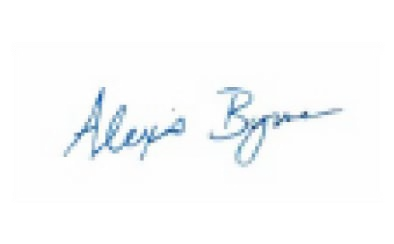 Alexis Byrne